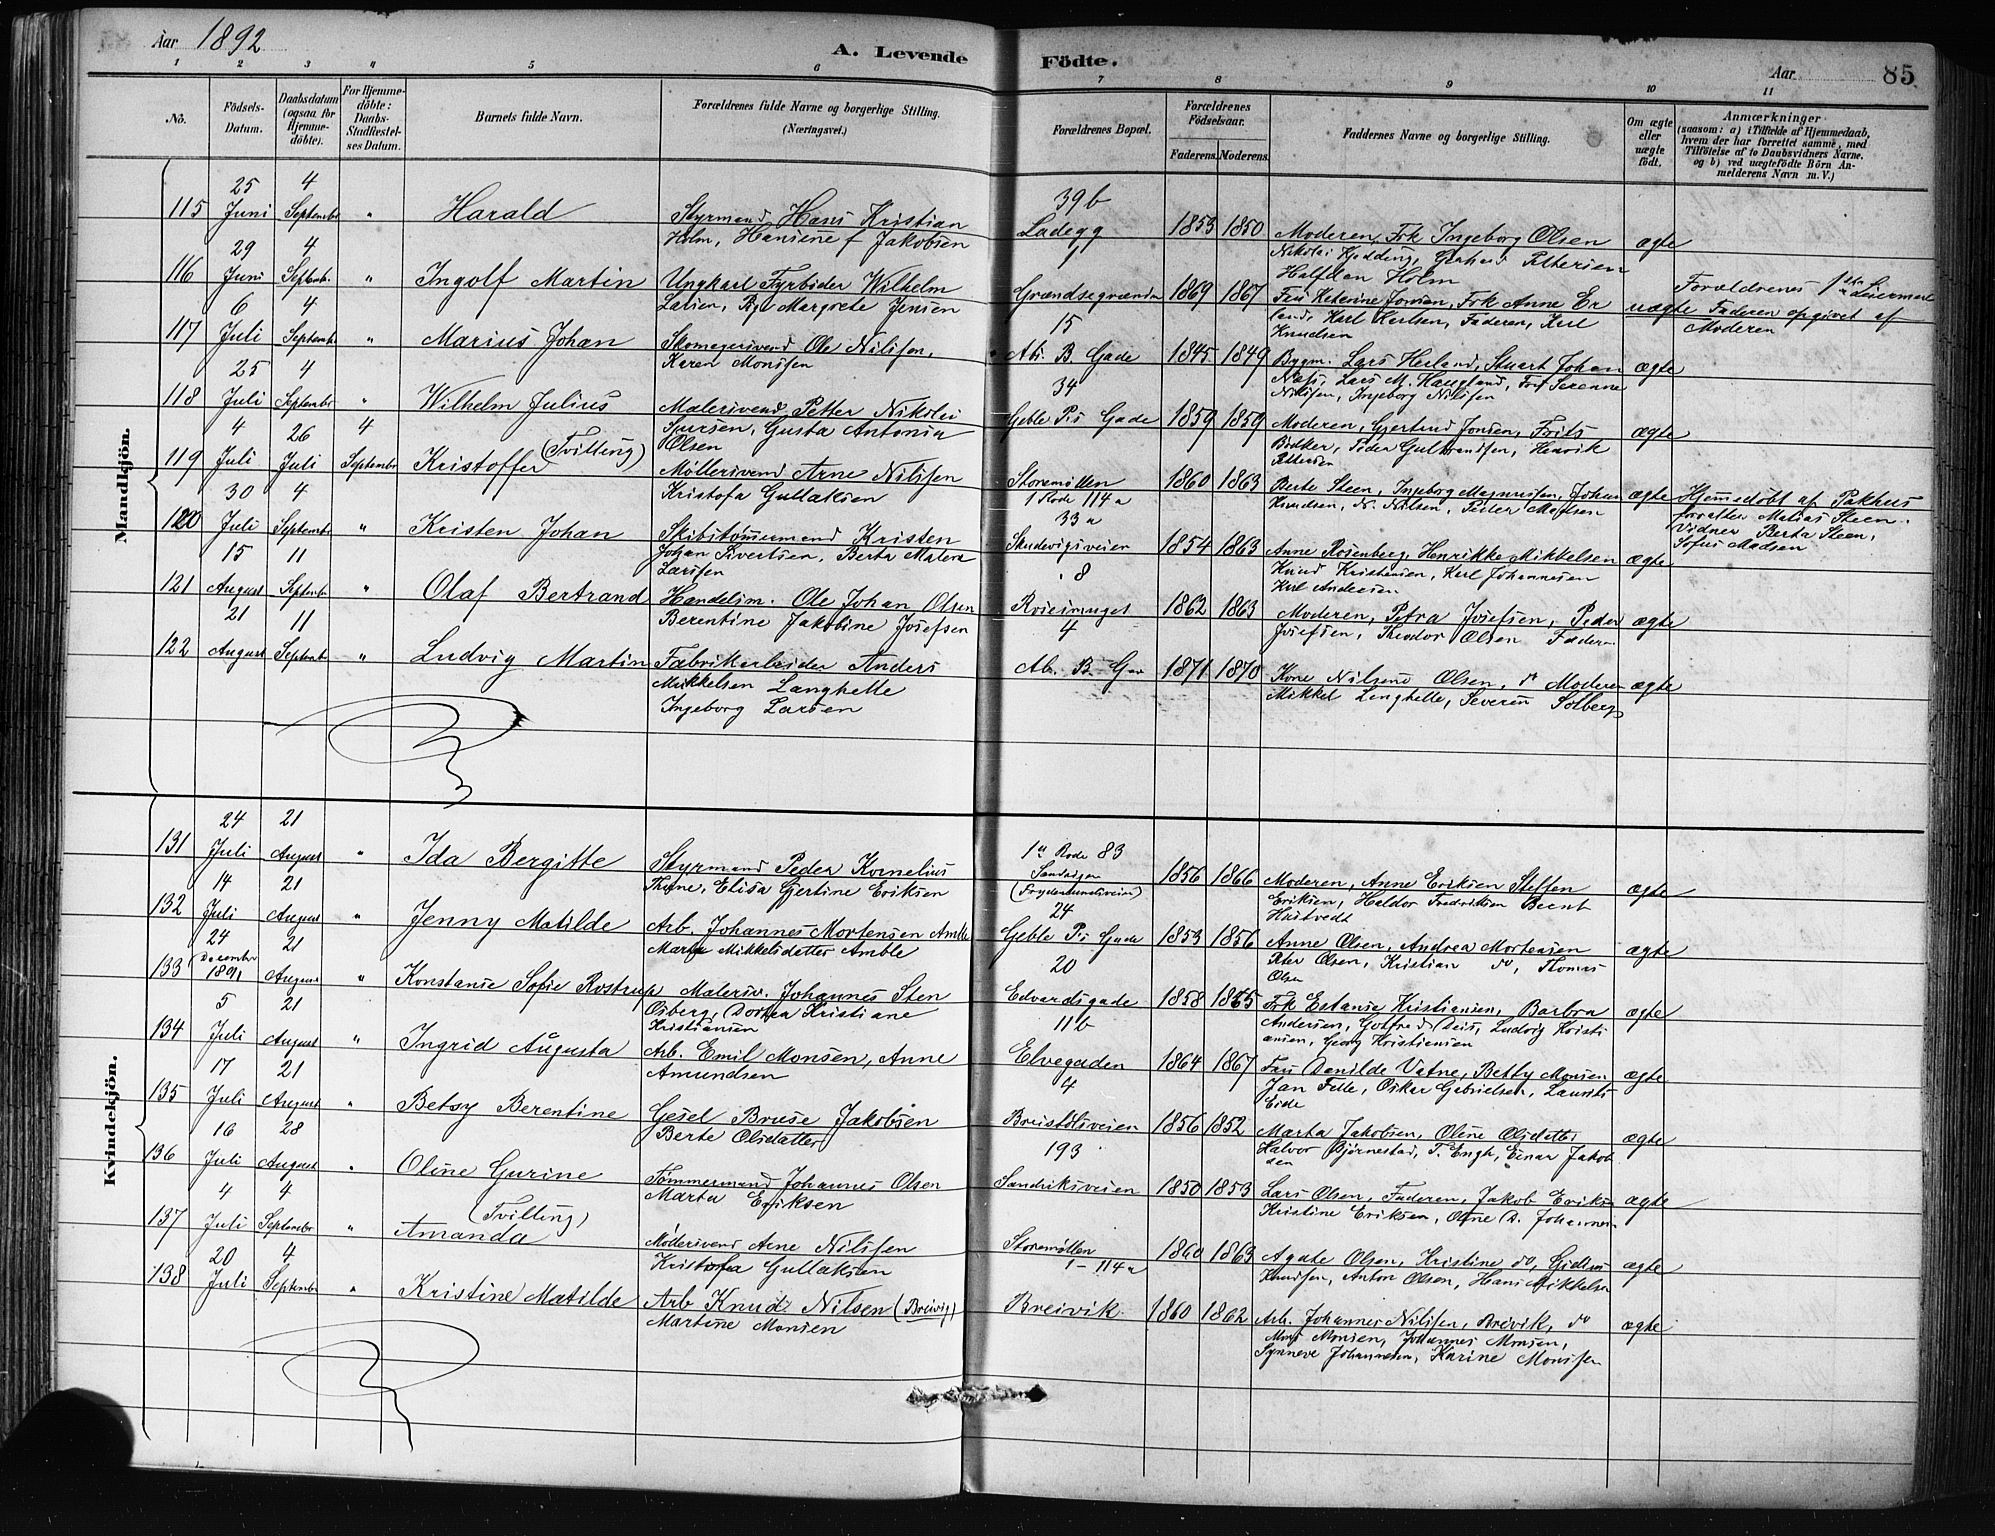 Aar 1892
A. Levende Födte.
Aar
85
1 2 3 " 5 6 7 8 9 10 11
No.
Födsels-Datum.
Daabsdatum (ogsaa for Hjemme-döbte).
For Hjemme-döbte: Daabs-Stadfæstel-ses Datum.
Barnets fulde Navn.
Forældrenes fulde Navne og borgerlige Stilling. (Næringsvei.)
Forældrenes Bopæl.
Forældrenes Födselsaar.
Faderens. Moderens.
Faddernes Navne og borgerlige Stilling.
Om ægte eller uægte födt.
Anmærkninger
(saasom: a) i Tilfælde af Hjemmedaab,
hvem der har forrettet samme, med
Tilföielse af to Daabsvidners Navne.
og b) ved uægtefödte Börn An-
melderens Navn m. V.)
Mandkjön.
115 25 Juni 4 September " Harald
Styrmand Hans Kristian
Holm, Hansine f Jakobsen
39b
Ladegg 1853 1850
Moderen, Frk Ingeborg Olsen
Nikolai Hedding, Gerhard Pettersen
Halfdan Holm
ægte
116 29 Juni 4 Septemb. " Ingolf Martin
Ungkarl Fyrbøder Wilhelm
Larsen, Pige Margrete Jensen
Grændsegrænden 1869 1867
Fru Katerine Jonsen, Frk Anne Er
land, Karl Karlsen, Faderen, Karl
Knudsen
uægte
Forældrenes 1ste Leiermaal
Faderen opgivet af
Moderen
117 6 Juli 4 Septemb. " Marius Johan
Skomagersvend Ole Nilssen,
Karen Monssen
15
Ab. B. Gade 1845 1849
Bygm. Lars Herland, Stuart Johan
Næss, Lars M. Haugland, Frk
Nilssen, Ingeborg Nilssen
ægte
118 25 Juli 4 September " Wilhelm Julius
Malersvend Petter Nikolai
Gusta Antonia
Olsen
34
Geble Ps Gade 1859 1859
Moderen, Gjertrud Jonsen, Frits
Bødker, Peder Gulbrandsen, Henrik
Pettersen
ægte
119 4 Juli 26 Juli 4 September Kristoffer (Tvilling)
Møllersvend Arne Nilssen
Kristofa Gullaksen
Storemøllen
1 Rode 114a
1860 1863
Berte Steen, Ingeborg Magnussen, Johan
Knudsen, N. Nilsen, Peder Madsen
ægte
Hjemmedøbt af Pakhus
forvalter Matias Steen.
Vidner Berta Steen,
Sofus Madsen
120 30 Juli 4 Septemb " Kristen Johan
Skibstømmermand Kristen
Johan Sivertsen, Berta Malena
Larssen
33a
Skudevigsveien 1854 1863
Anne Rosenberg, Henrikke Mikkelsen
Knud Kristensen, Karl Johannesen
Karl Andersen
ægte
121 15 August 11 Septemb " Olaf Bertrand
Handelsm. Ole Johan Olsen
Berentine Jakobine Josefsen
8
1862 1863
Moderen, Petra Josefsen, Peder
Josefsen, Theodor Olsen Faderen
ægte
122 21 August 11 Septemb " Ludvig Martin
Fabrikarbeider Anders
Mikkelsen Langhelle
Ingeborg Larsen
4
Ab. B. Gar 1871 1870
Kone Nilsine Olsen, do Moderen
Mikkel Langhelle, Severin Solberg
ægte
Kvindekjön.
131 24 Juli 21 August " Ida Bergitte
Styrmand Peder Kornelius
Thune, Elisa Gjertine Eriksen
1a Rode 83
Sandvigen
1856 1866
Moderen, Anne Eriksen Steffen
Eriksen, Haldor Fredriksen Berent
Huitvedt
ægte
132 14 Juli 21 August " Jenny Matilde
Arb. Johannes Mortensen Amble
Marta Mikkelsdatter Amble
24
Geble Ps Gade 1853 1856
Anne Olsen, Andrea Mortensen
Peter Olsen, Kristian do, Thomas
Olsen
ægte
133 24 December 1891 21 August " Konstanse Sofie Rostrup
Malersv. Johannes Sten
Osberg, Dortea Kristiane
Kristiansen
20
Edvardsgade 1858 1865
Frk Estanse Kristiansen, Barbra
Andersen, Gotfred Deis, Ludvig Kristi
ansen, Georg Kristiansen
ægte
134 5 Juli 21 August " Ingrid Augusta
Arb. Emil Monsen, Anne
Amundsen
11b
Elvegaden 1864 1867
Fru Vatne, Betty Monsen
Jan Felle, Oskar Gabrielsen, Laurits
Eide
ægte
135 17 Juli 21 August " Betsy Berentine
Gesel Bruse Jakobsen
Berte Olsdatter
4
Breistølsveien 1856 1852
Marta Jakobsen, Oline Olsdatter
Halvor Bjørnestad, T. Engh, Einar Jakob
sen
ægte
136 16 Juli 28 August " Oline Gurine
Tømmermand Johannes Olsen
Marta Eriksen
193
Sandviksveien 1850 1853
Lars Olsen, Faderen, Jakob Eriksen
Kristine Eriksen, Oline D. Johannesen
ægte
137 4 Juli 4 September " (Tvilling)
Amanda
Møllersvend Arne Nilssen
Kristofa Gullaksen
Storemøllen
1 - 114a
1860 1863
Agate Olsen, Kristine do, Gidsken
Knudsen, Anton Olsen, Hans Mikkelsen
ægte
138 20 Juli 4 September " Kristine Matilde
Arb Knud Nilsen (Breivig)
Martine Monsen
Breivik 1860 1862
Arb. Johannes Nilssen, Breivik, do
Mons Monsen, Johannes Monsen,
Synneve Johannesen, Karine Monssen
ægte